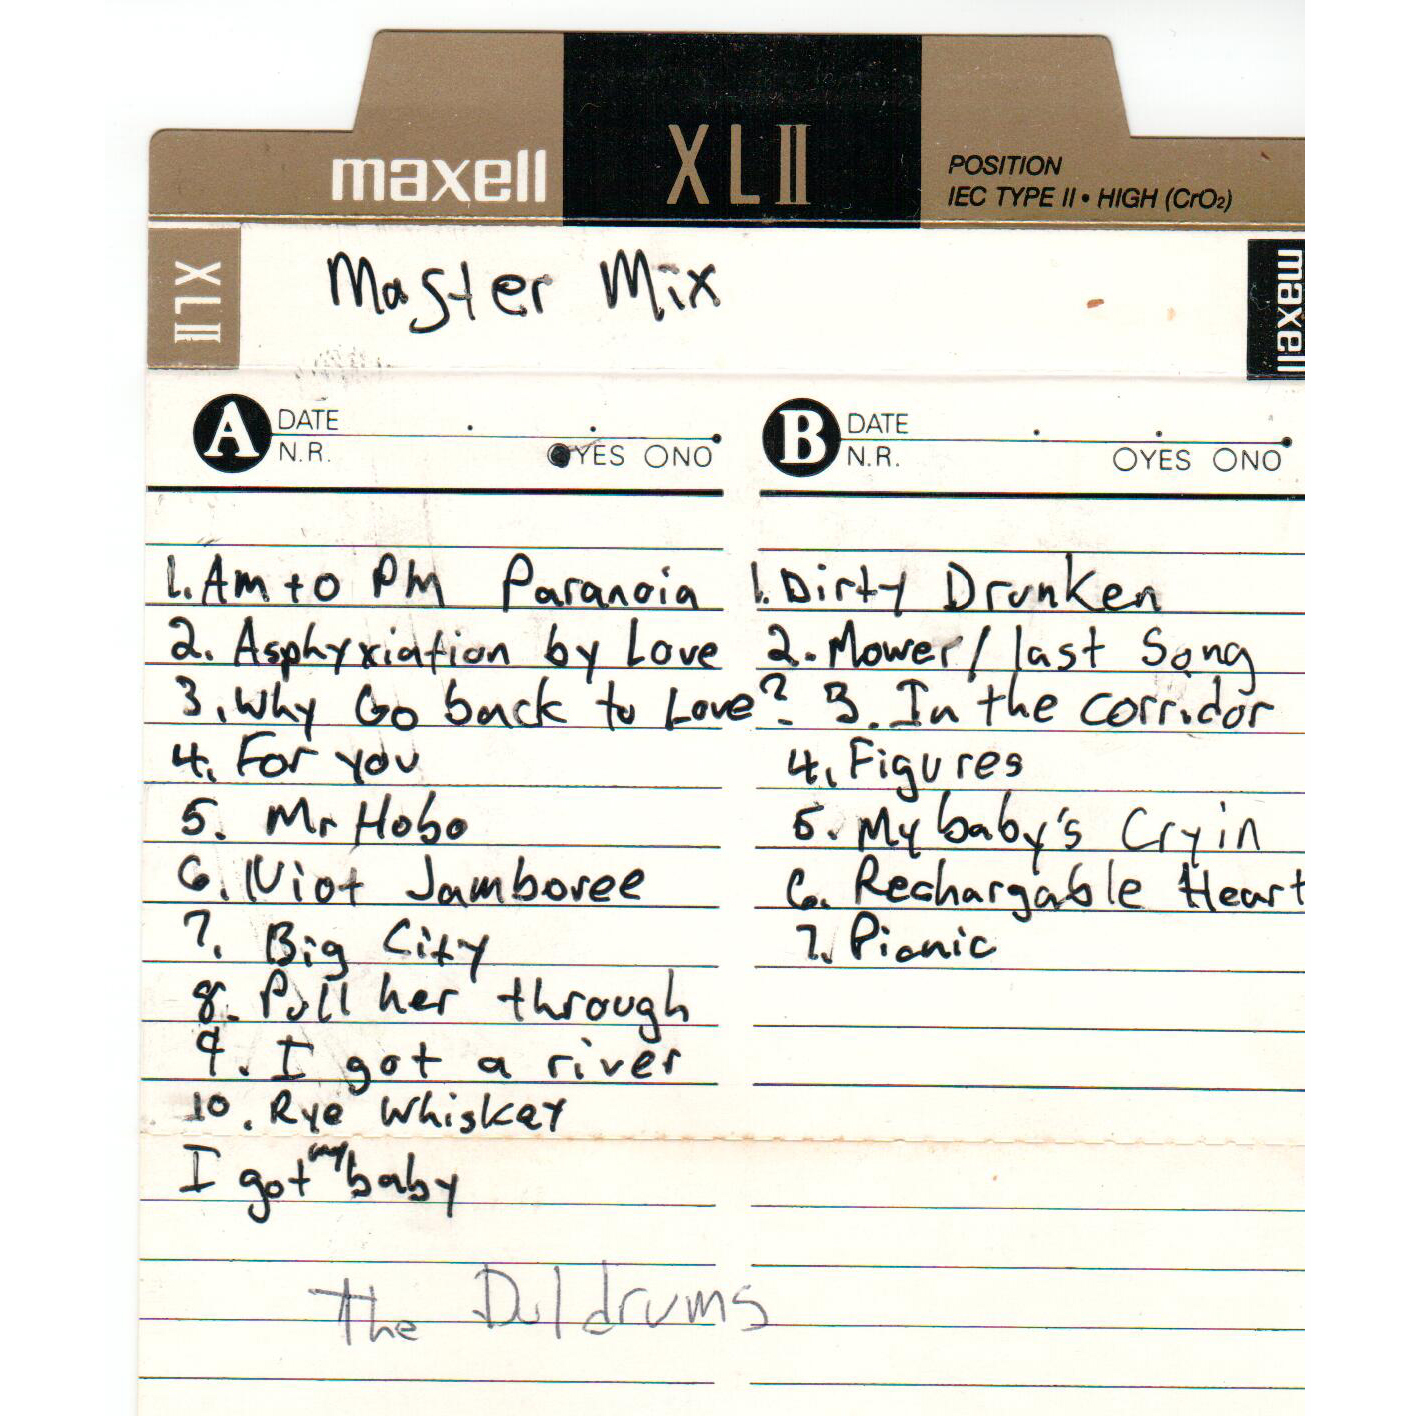 maxell XLII POSITION
IEC TYPE II • HIGH (CrO₂)
XLII Master Mix maxell
A DATE
N.R. YES NO
B DATE
N.R. YES NO
1. Am to PM Paranoia
2. Asphyxiation by Love
3. Why Go back to Love?
4. For you
5. Mr Hobo
6. Niot Jamboree
7. Big City
8. Pull her through
9. I got a river
10. Rye Whiskey
I got my baby
1. Dirty Drunken
2. Mower/last Song
3. In the corridor
4. Figures
5. My baby's Cryin
6. Rechargable Heart
7. Picnic
The Duldrums